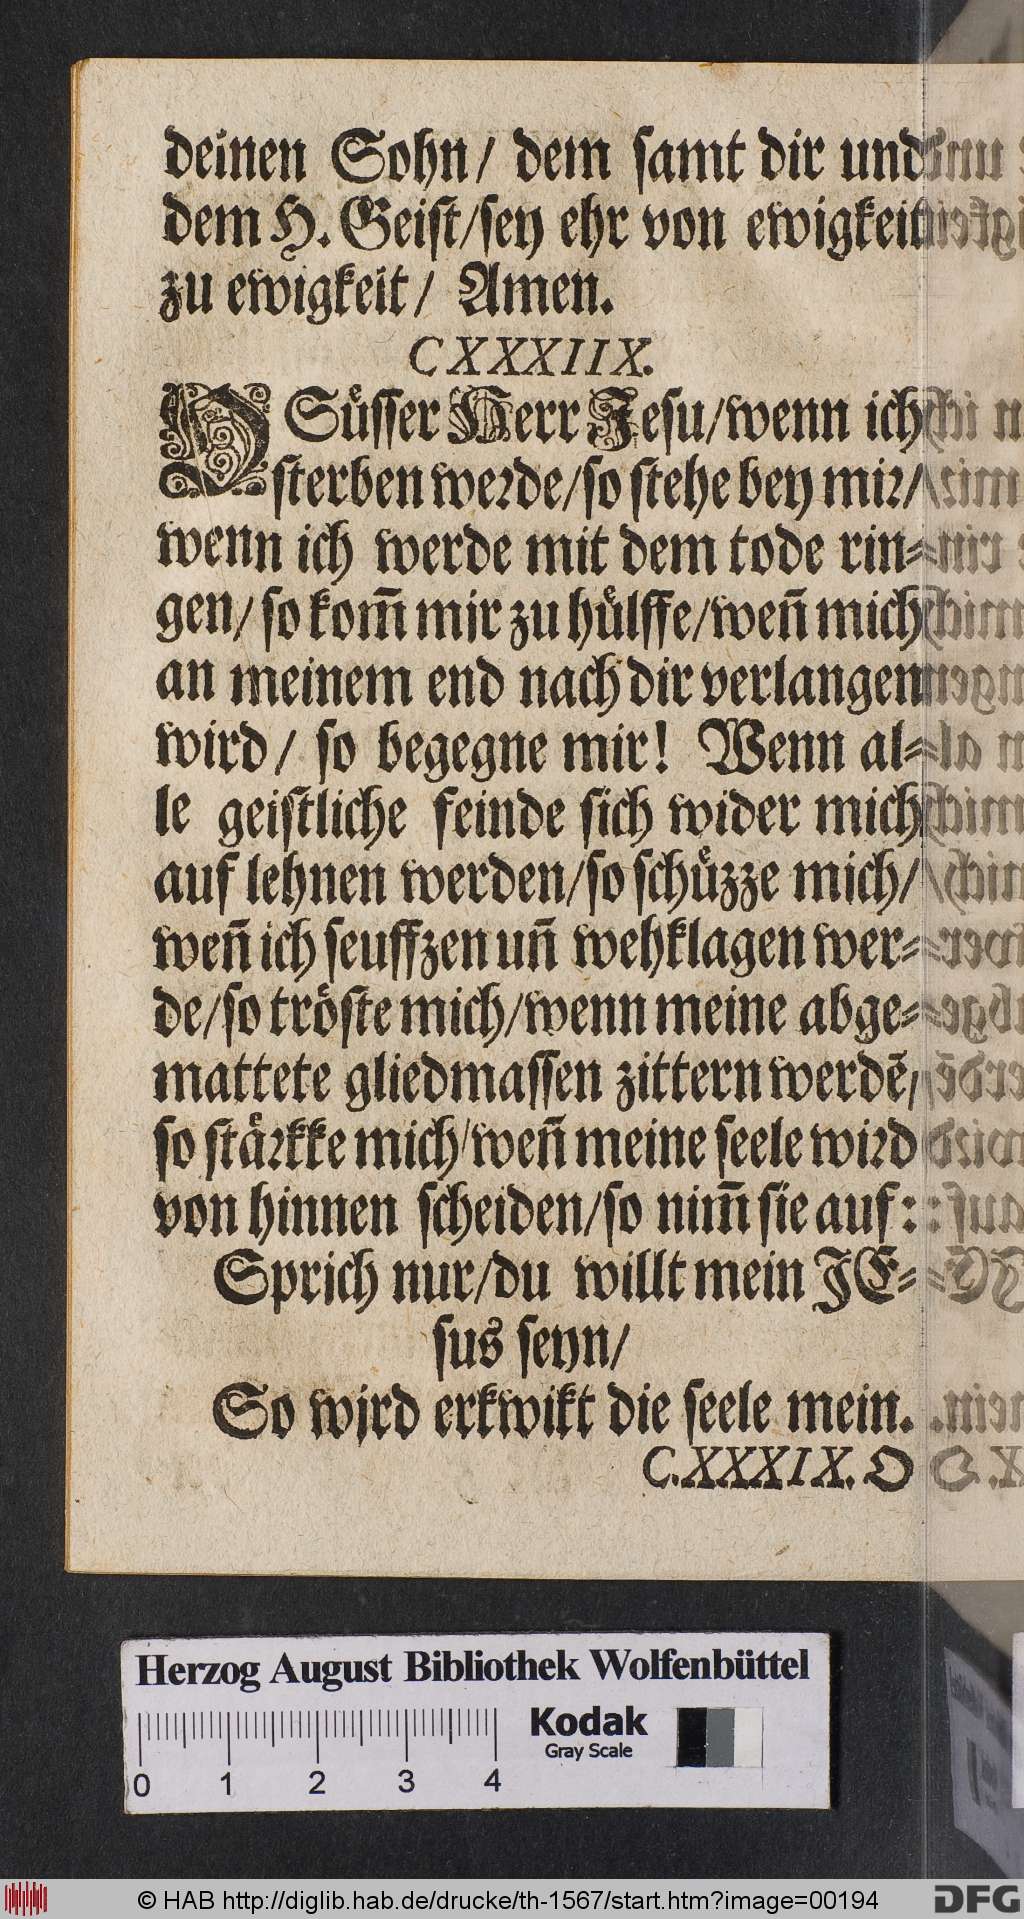 deinen Sohn/ dem samt dir und
dem H. Geist/sey ehr von ewigkeit
zu ewigkeit/ Amen.
CXXXIIX.
O Süsser Herr Jesu/wenn ich
sterben werde/so stehe bey mir/
wenn ich werde mit dem tode rin-
gen/so kom̄ mir zu hülffe/wen̄ mich
an meinem end nach dir verlangen
wird/ so begegne mir! Wenn al-
le geistliche feinde sich wider mich
auf lehnen werden/so schüzze mich/
wen̄ ich seuffzen un̄ wehklagen wer-
de/so tröste mich/wenn meine abge-
mattete gliedmassen zittern werdē/
so stärkke mich/wen̄ meine seele wird
von hinnen scheiden/so nim̄ sie auf:
Sprich nur/du willt mein JE-
sus seyn/
So wird erkwikt die seele mein.
C.XXXIX. O
Herzog August Bibliothek Wolfenbüttel
Kodak
Gray Scale
0 1 2 3 4
© HAB http://diglib.hab.de/drucke/th-1567/start.htm?image=00194
DFG